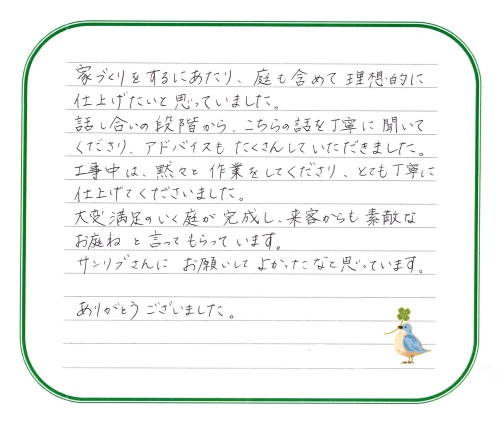 家づくりをするにあたり、庭も含めて理想的に
仕上げたいと思っていました。
話し合いの段階から、こちらの話を丁寧に聞いて
くださり、アドバイスもたくさんしていただきました。
工事中は、黙々と作業をしてくださり、とても丁寧に
仕上げてくださいました。
大変満足のいく庭が完成し、来客からも素敵な
お庭ねと言ってもらっています。
サンリブさんにお願いしてよかったなと思っています。
ありがとうございました。